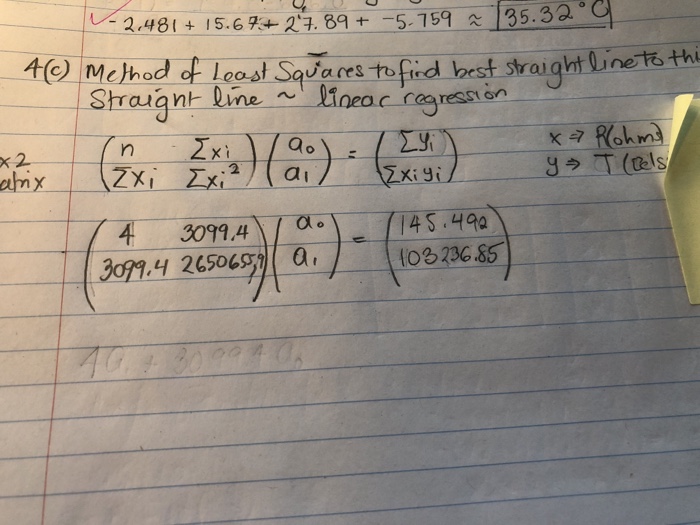 -2.481 + 15.67 + 27.89 + -5.759 ≈ 35.32°C
4(c) Method of Least Squares to find best straight line to thi
Straight line ~ linear regression
x2
atrix
(n Σxi) (a₀) = (Σyi)
(Σxi Σxi²) (a₁) (Σxiyi)
x ⇒ R(ohms)
y ⇒ T (Cels
(4 3099.4) (a₀) = (145.492)
(3099.4 2650655,9) (a₁) (103236.85)